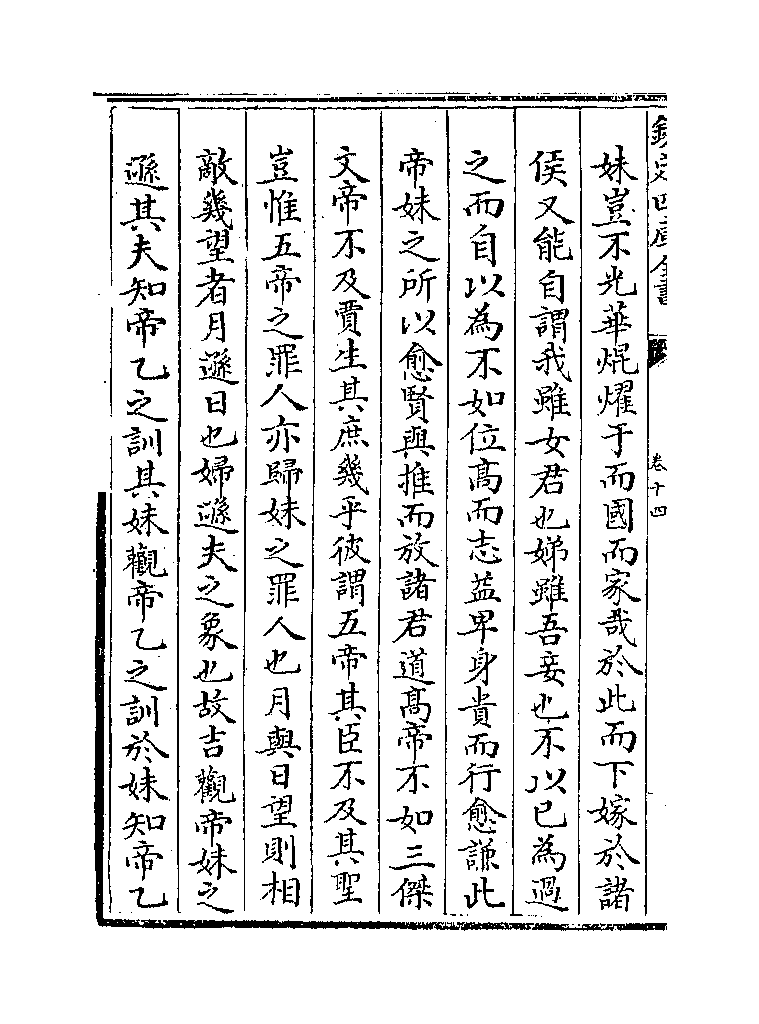 欽定四庫全書
卷十四
妹豈不光華焜燿于而國而家哉於此而下嫁於諸
侯又能自謂我雖女君也娣雖吾妾也不以已為過
之而自以為不如位髙而志益卑身貴而行愈謙此
帝妹之所以愈賢與推而放諸君道髙帝不如三傑
文帝不及賈生其庶幾乎彼謂五帝其臣不及其聖
豈惟五帝之罪人亦歸妹之罪人也月與日望則相
敵幾望者月遜日也婦遜夫之象也故吉觀帝妹之
遜其夫知帝乙之訓其妹觀帝乙之訓於妹知帝乙